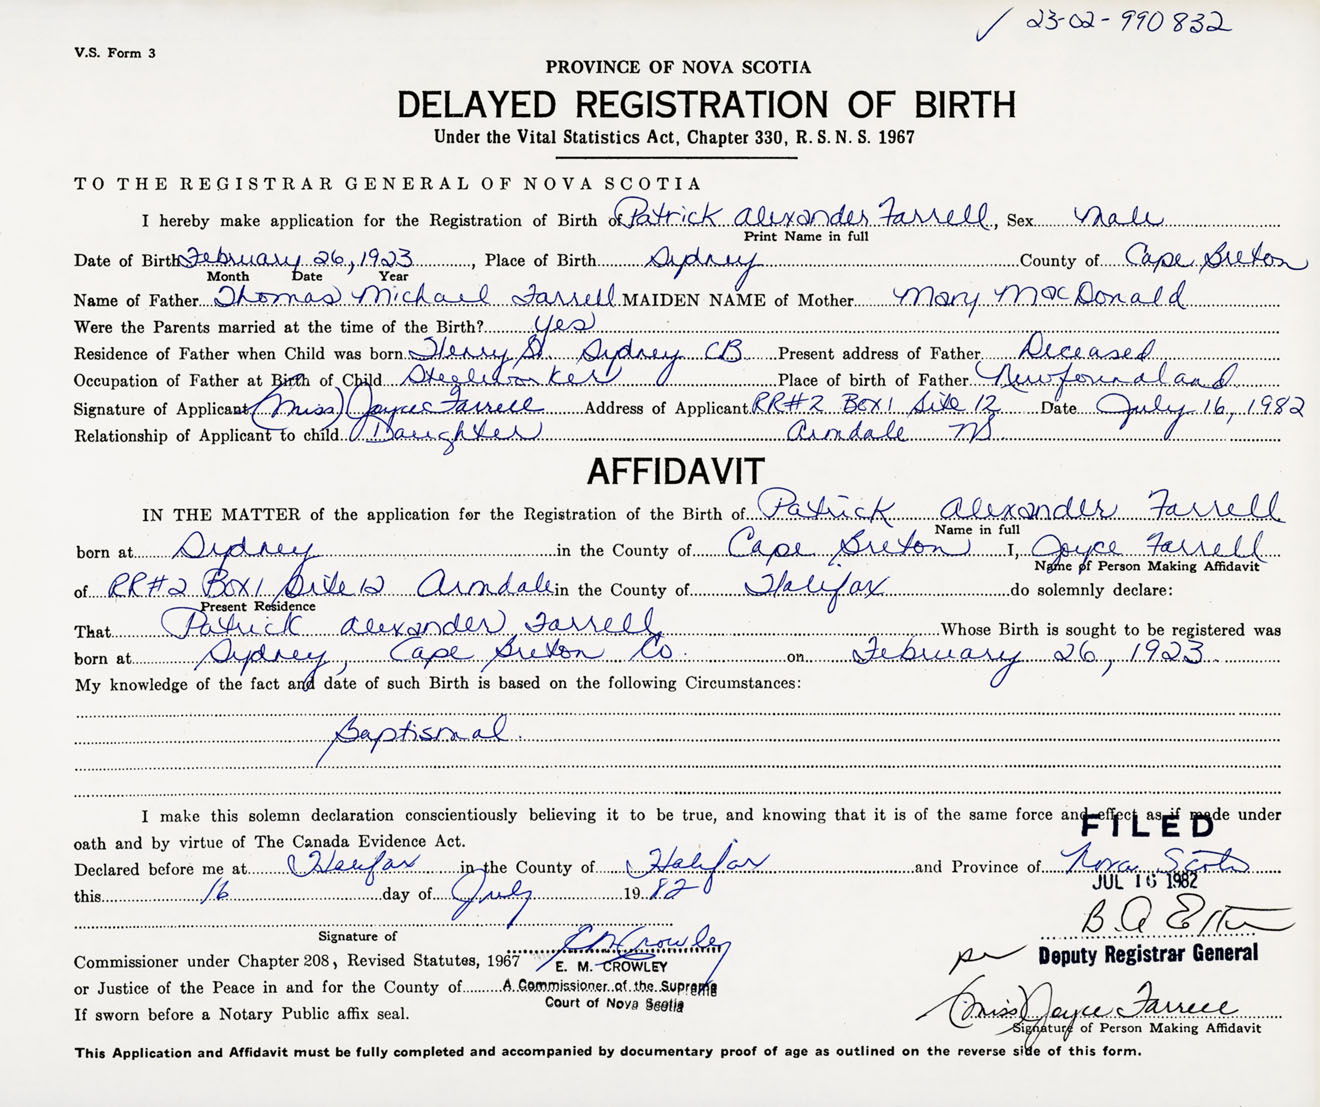 ✓ 23-02-990832
V.S. Form 3
PROVINCE OF NOVA SCOTIA
DELAYED REGISTRATION OF BIRTH
Under the Vital Statistics Act, Chapter 330, R.S.N.S. 1967
TO THE REGISTRAR GENERAL OF NOVA SCOTIA
I hereby make application for the Registration of Birth of Patrick Alexander Farrell, Sex Male
Print Name in full
Date of Birth February 26, 1923, Place of Birth Sydney County of Cape Breton
Month Date Year
Name of Father Thomas Michael Farrell MAIDEN NAME of Mother Mary MacDonald
Were the Parents married at the time of the Birth? Yes
Residence of Father when Child was born Henry St. Sydney CB Present address of Father Deceased
Occupation of Father at Birth of Child Steelworker Place of birth of Father Newfoundland
Signature of Applicant (Miss) Joyce Farrell Address of Applicant RR#2 Box 1 Site 12 Date July 16, 1982
Relationship of Applicant to child Daughter Armdale NS
AFFIDAVIT
IN THE MATTER of the application for the Registration of the Birth of Patrick Alexander Farrell
Name in full
born at Sydney in the County of Cape Breton I, Joyce Farrell
Name of Person Making Affidavit
of RR#2 Box 1 Site 12 Armdale in the County of Halifax do solemnly declare:
Present Residence
That Patrick Alexander Farrell Whose Birth is sought to be registered was
born at Sydney, Cape Breton Co. on February 26, 1923
My knowledge of the fact and date of such Birth is based on the following Circumstances:
Baptismal.
I make this solemn declaration conscientiously believing it to be true, and knowing that it is of the same force and effect as if made under
oath and by virtue of The Canada Evidence Act.
FILED
Declared before me at Halifax in the County of Halifax and Province of Nova Scotia
JUL 16 1982
this 16 day of July 19 82
Signature of
E M Crowley
Commissioner under Chapter 208, Revised Statutes, 1967
E. M. CROWLEY
per Deputy Registrar General
or Justice of the Peace in and for the County of A Commissioner of the Supreme
Court of Nova Scotia
(Miss) Joyce Farrell
If sworn before a Notary Public affix seal.
Signature of Person Making Affidavit
This Application and Affidavit must be fully completed and accompanied by documentary proof of age as outlined on the reverse side of this form.